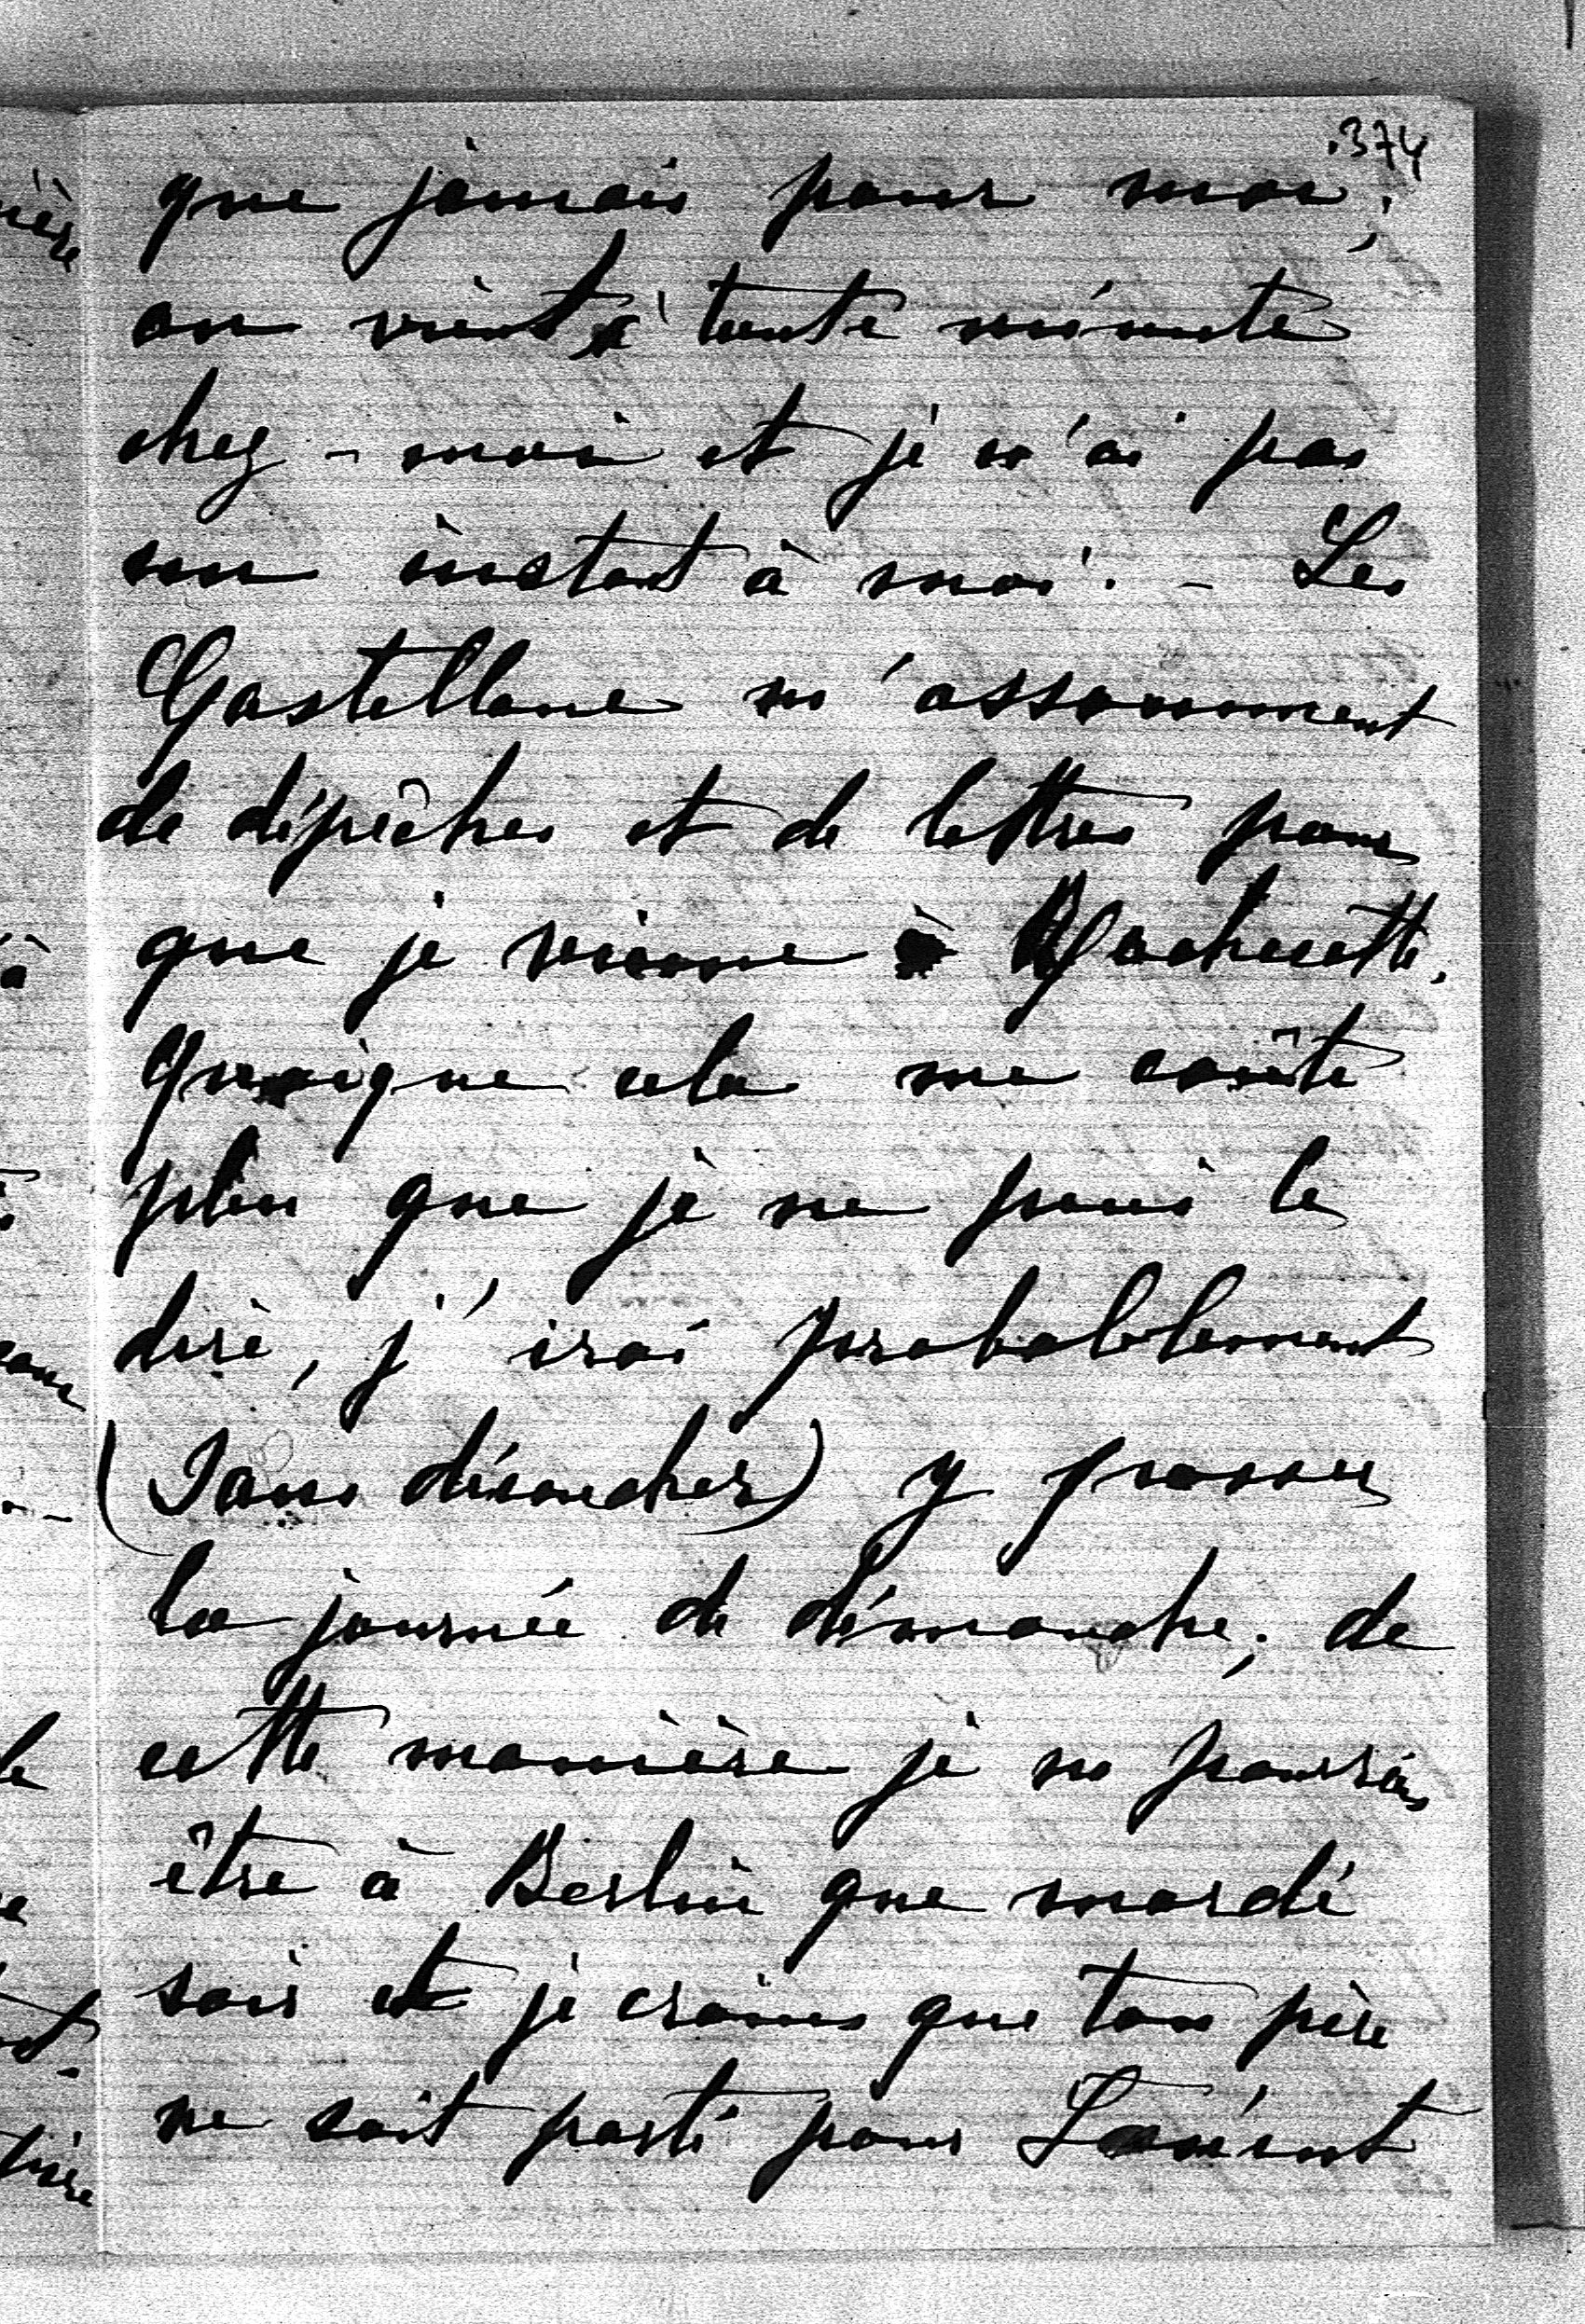 374
que jamais pour moi;
on vient à toute minute
chez-moi et je n'ai pas
un instant à moi. - Les
Castellane m'assomment
de dépêches et de lettres pour
que je vienne à Rochecotte.
Quoique cela me coûte
plus que je ne puis le
dire, j'irai probablement
(sans découcher) y passer
la journée de dimanche; de
cette manière je ne pourrais
être à Berlin que mardi
soir et je crains que ton père
ne soit parti pour